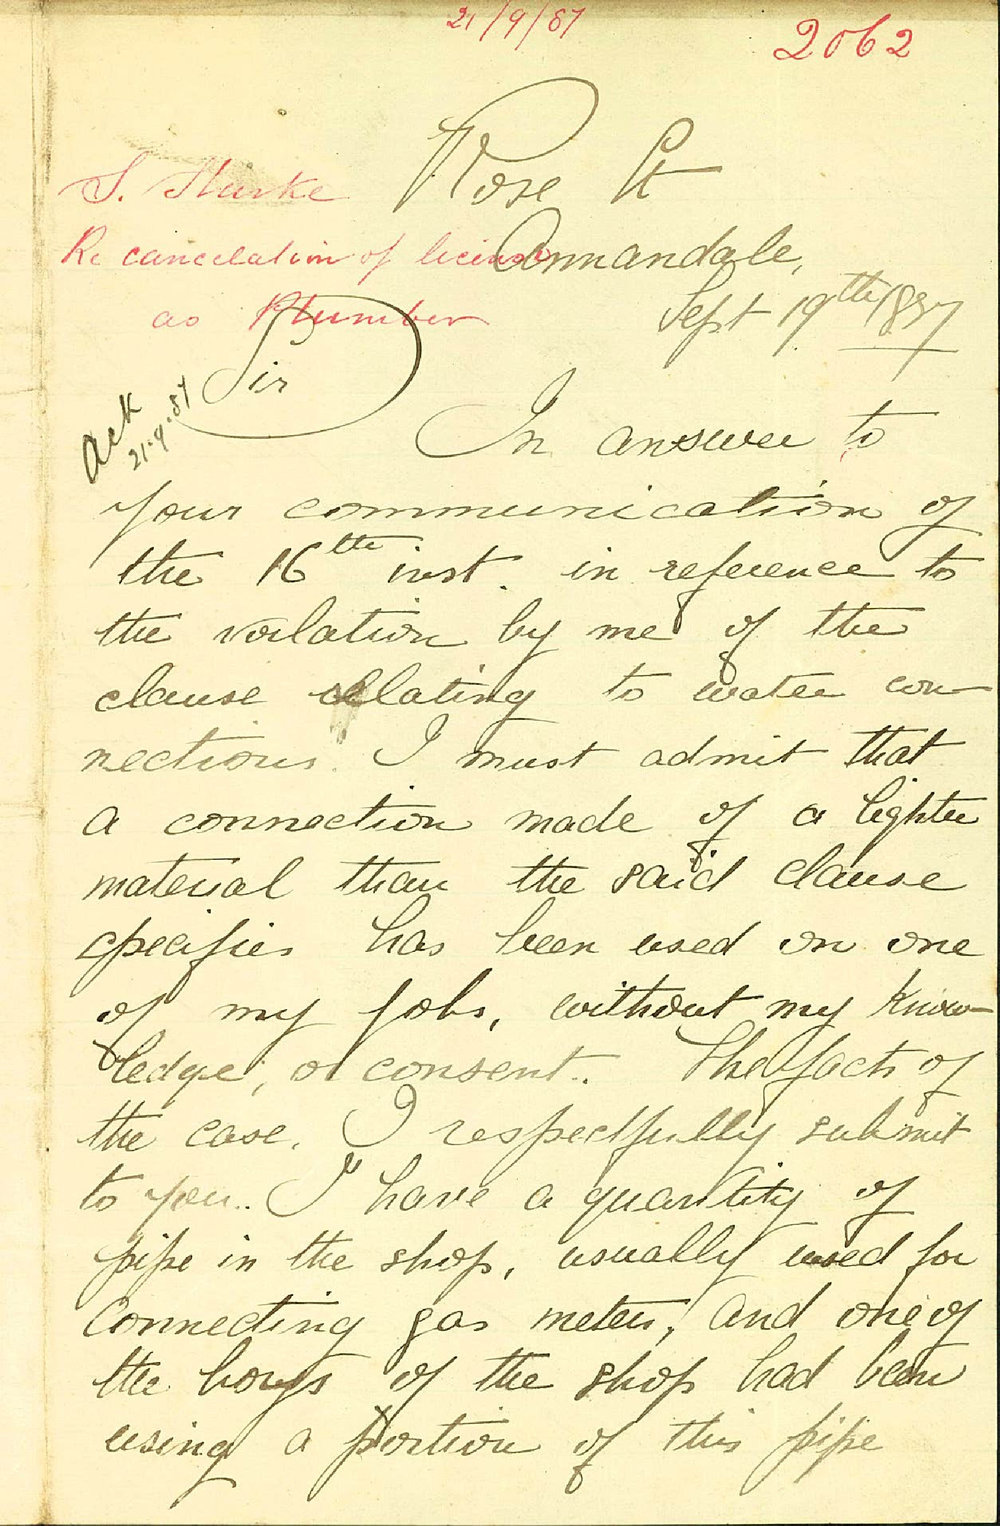 21/9/87
2062
Rose St
S. Sturke
Re cancelation of license
Annandale,
as Plumber
Sept 19th 1887
Sir
Ack
21.9.87
In answer to
your communication of
the 16th inst. in reference to
the voilation by me of the
clause relating to water con-
nections. I must admit that
a connection made of a lighter
material than the said clause
specifies has been used on one
of my jobs, without my know-
ledge, or consent.. The facts of
the case. I respectfully submit
to you.. I have a quantity of
pipe in the shop, usually used for
connecting gas meters, and one of
the boys of the shop had been
using a portion of this pipe